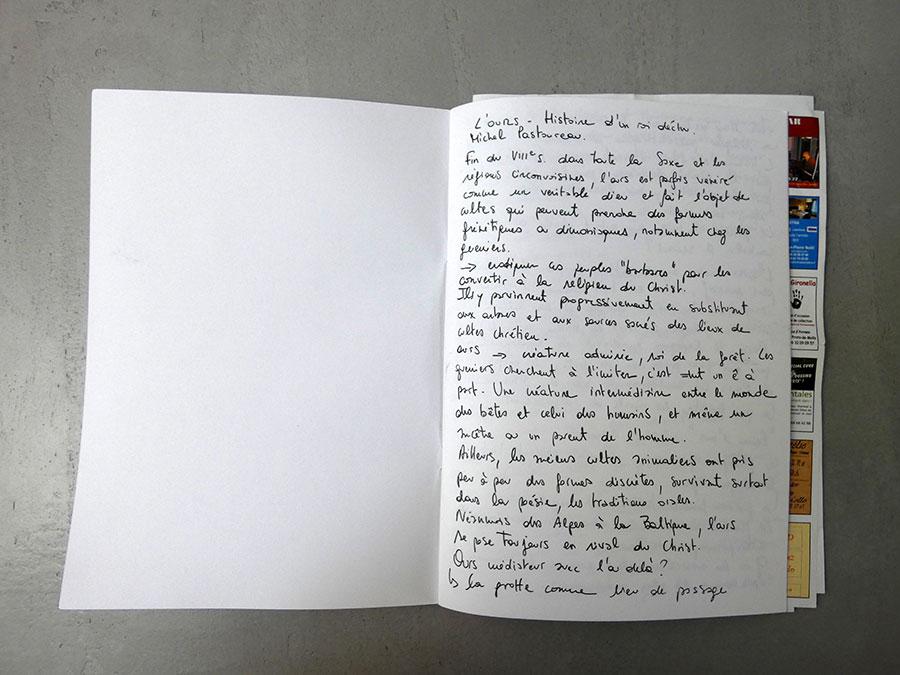 L'ours - Histoire d'un roi déchu.
Michel Pastoureau.
Fin du VIIIe s. dans toute la Saxe et les
régions circonvoisines, l'ours est parfois vénéré
comme un véritable dieu et fait l'objet de
cultes qui peuvent prendre des formes
frénétiques ou démoniaques, notamment chez les
guerriers.
→ éradiquer ces peuples "barbares" pour les
convertir à la religion du Christ.
Ils y parvinrent progressivement en substituant
aux arbres et aux sources sacrés des lieux de
cultes chrétien.
ours → créature admirée, roi de la forêt. Les
guerriers cherchent à l'imiter, c'est un ê à
part. Une créature intermédiaire entre le monde
des bêtes et celui des humains, et même un
ancêtre ou un parent de l'homme.
Ailleurs, les anciens cultes animaliers ont pris
peu à peu des formes discrètes, survivant surtout
dans la poésie, les traditions orales.
Néanmois des Alpes à la Baltique, l'ours
se pose toujours en rival du Christ.
Ours médiateur avec l'au delà ?
↳ la grotte comme lieu de passage
AR
Gironella